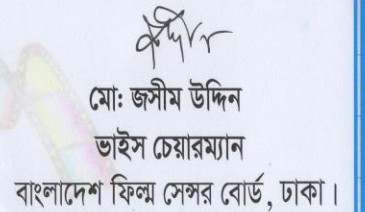 মো: জসীম উদ্দিন
ভাইস চেয়ারম্যান
বাংলাদেশ ফিল্ম সেন্সর বোর্ড, ঢাকা।